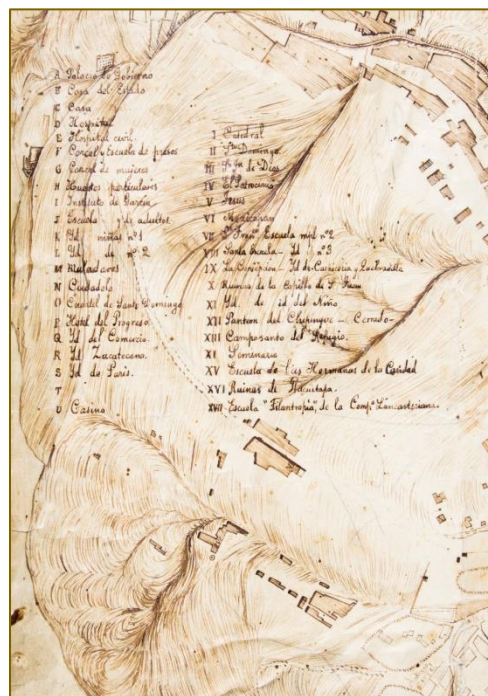 A Palacio de Gobierno
B Casa del Estado
C Casa
D Hospital
E Hospital civil.
F Carcel y Escuela de presos
G Carcel de mujeres
H particulares
I Instituto de Garcia
J Escuela de adultos
K Id niñas nº 1
L Id. de nº 2
M
N Ciudadela
O Cuartel de Santo Domingo
P Hotel del Progreso
Q Id. del Comercio.
R Id. Zacatecano.
S Id. de Paris.
T
U Casino
I Catedral
II Sto. Domingo
III S. Jn. de Dios
IV El Patrocinio
V Jesus
VI Mexicapan
VII Sn. Franco. Escuela mpl nº 2
VIII Santa - Id. nº 3
IX La Concepcion, Id. de
X Ruinas de la Capilla de S. Juan
XI Id. de id. del Niño.
XII Panteon del Chepinque - Cerrado-
XIII Camposanto del Refugio.
XI Seminario
XV Escuela de las Hermanas de la Caridad
XVI Ruinas de Tlacuitapa.
XVII Escuela "Filantropia", de la Compª. Lancasteriana.